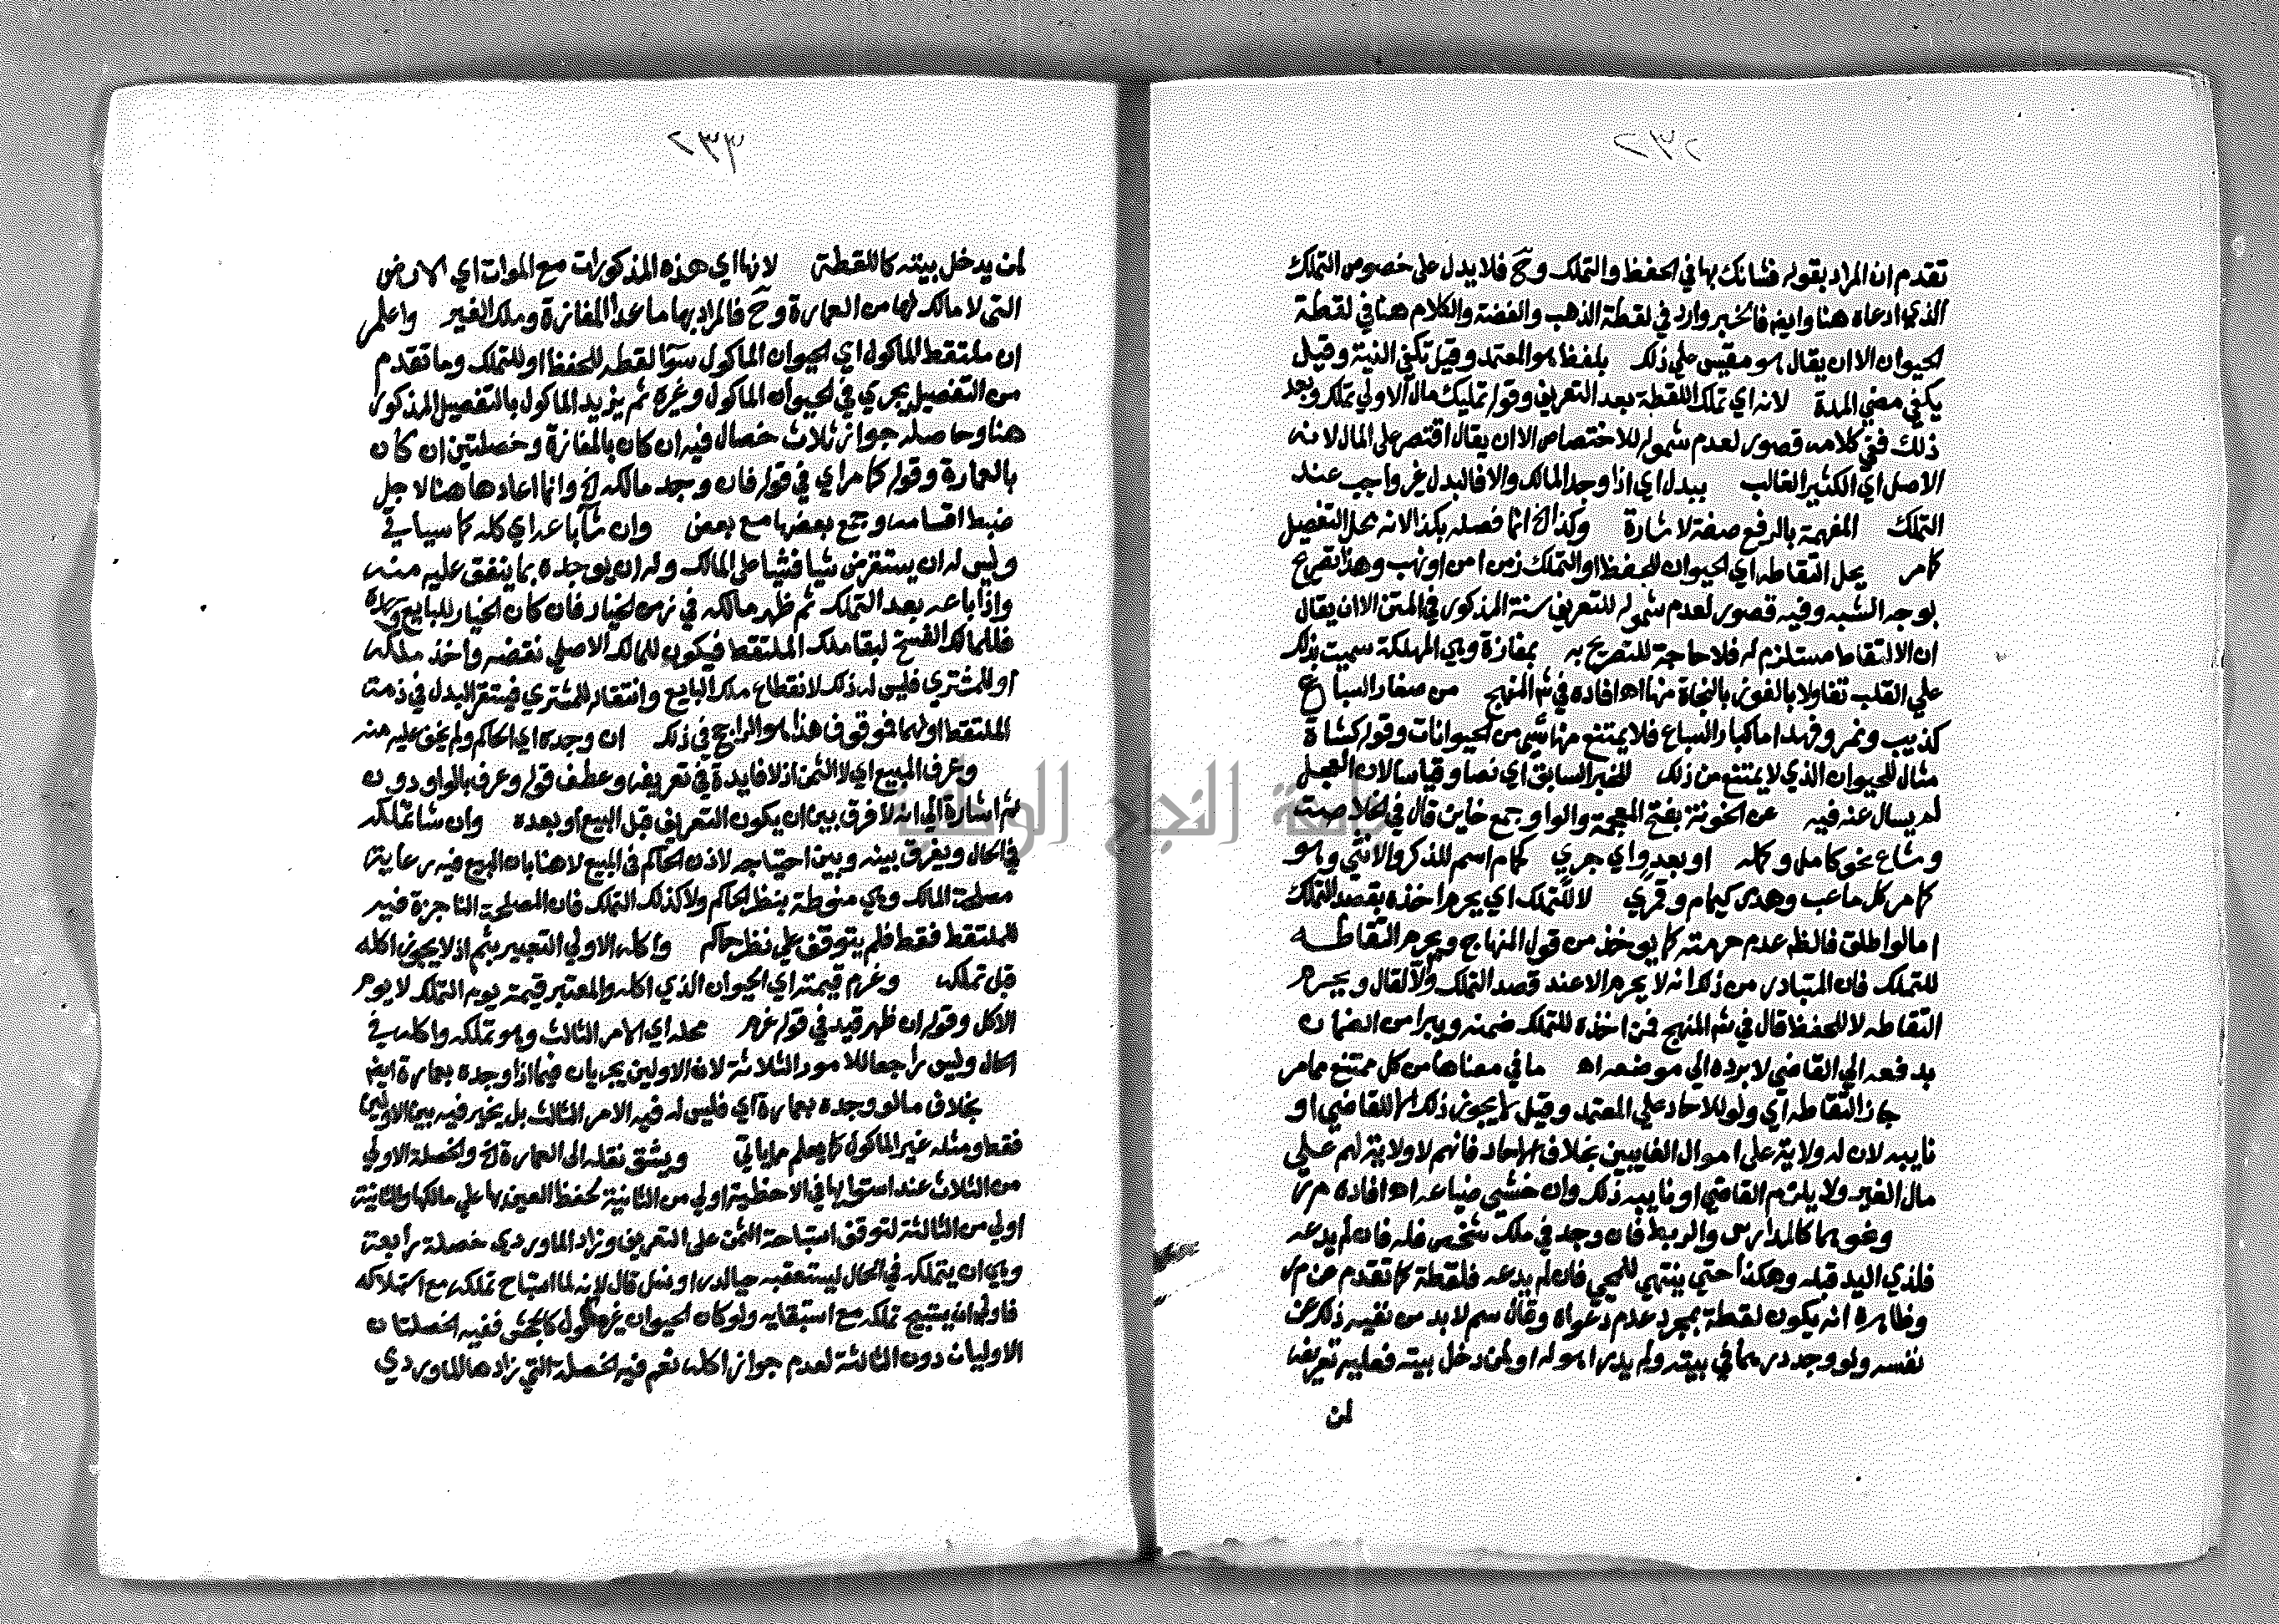 ٢٣٢
تقدم ان المراد بقوله فشانك بها في الحفظ والتملك وح فلا يدل على خصوص التملك
الذي ادعاه هنا وايضا فالخبر وارد في لقطة الذهب والفضة والكلام هنا في لقطة
الحيوان الا ان يقال هو مقيس على ذلك بلفظ هو المعتمد وقيل تكفي النية وقيل
يكفي مضي المدة لانه اي تملك اللقطة بعد التعريف وقوله تمليك مال الاولي تملك وبعد
ذلك ففي كلامه قصور لعدم شموله للاختصاص الا ان يقال اقتصر على المال لانه
الاصل اي الكثير الغالب ببدل اي اذا وجد المالك والا فالبدل غير واجب عند
التملك المفهمة بالرفع صفة لاشارة وكذا الخ انما فصله بكذا لانه محل التفصيل
كامر يحل التقاطه اي الحيوان للحفظ او التملك زمن امن او نهب وهذا تصريح
بوجه الشبه وفيه قصور لعدم شموله للتعريف سنة المذكور في المتن الا ان يقال
ان الالتقاط مستلزم له فلا حاجة للتصريح به بمفازة وهي المهلكة سميت بذلك
علي القلب تفاولا بالفوز بالنجاة منها اهـ افاده في شم المنهج من صغار السباع
كذيب ونمر وفهد اما كبار السباع فلا يمتنع منها شي من الحيوانات وقوله كشاة
مثال للحيوان الذي لا يمتنع من ذلك للخبر السابق اي نصا وقياسا لان العجل
لم يسال عنه فيه عن الخونة بفتح المعجمة والواو جمع خاين قال في الخلاصة
وشاع نحو كامل وكمله او بعدو اي جري كحمام اسم للذكر والانثي وهو
كامر كل ما عب وهدر كيمام وقمري لا للتملك اي يحرم اخذه بقصد التملك
اما لو اطلق فالظ عدم حرمته كما يوخذ من قول المنهاج ويحرم التقاطه
للتملك فان المتبادر من ذلك انه لا يحرم الا عند قصد التملك والا لقال ويحرم
التقاطه لا للحفظ قال في شم المنهج فمن اخذه للتملك ضمنه ويبرا من الضمان
بدفعه الي القاضي لا برده الي موضعه اهـ ما في معناها من كل ممتنع مما مر
جاز التقاطه اي ولو للاحاد علي المعتمد وقيل لا يجوز ذلك الا للقاضي او
نايبه لان له ولاية على اموال الغايبين بخلاف الاحاد فانهم لا ولاية لهم علي
مال الغير ولا يلزم القاضي او نايبه ذلك وان خشي ضياعه اهـ افاده مر
ونحوهما كالمدارس والربط فان وجد في ملك شخص فله فان لم يدعه
فلذي اليد قبله وهكذا حتي ينتهي للمحي فان لم يدعه فلقطة كما تقدم عن مر
وظاهره انه يكون لقطة بمجرد عدم دعواه وقال سم لا بد من نفيه ذلك عن
نفسه ولو وجد درهما في بيته ولم يدر اهو له او لمن دخل بيته فعليه تعريفه
لمن
٢٣٣
لمن يدخل بيته كاللقطة لانها اي هذه المذكورات مع الموات اي الارض
التي لا مالك لها من العمارة وح فالمراد بها ما عدا المفازة وملك الغير واعلم
ان ملتقط الماكول اي الحيوان الماكول سوا لقطه للحفظ او للتملك وما تقدم
من التفصيل يجري في الحيوان الماكول وغيره ثم يزيد الماكول بالتفصيل المذكور
هنا وحاصله جواز ثلاث خصال فيه ان كان بالمفازة وخصلتين ان كان
بالعمارة وقوله كامر اي في قوله فان وجد مالكه الخ وانما اعادها هنا لاجل
ضبط اقسامه وجمع بعضها مع بعض وان شا باعه اي كله كما سياتي
وليس له ان يستقرض شيا فشيا على المالك وله ان يوجده بما ينفق عليه منه
واذا باعه بعد التملك ثم ظهر مالكه في زمن الخيار فان كان الخيار للبايع
فللمالك الفسخ لبقا ملك الملتقط فيكون للمالك الاصلي نقضه واخذ ملكه
او للمشتري فليس له ذلك لانقطاع ملك البايع وانتقاله للمشتري فيستقر البدل في ذمة
الملتقط او لهما فموقوف هذا هو الراجح في ذلك ان وجده اي الحاكم ولم يخف عليه منه
وعرف المبيع اي لا الثمن اذ لا فايدة في تعريفه وعطف قوله وعرف بالواو دون
ثم اشارة الي انه لا فرق بين ان يكون التعريف قبل البيع او بعده وان شا تملكه
في الحال ويفرق بينه وبين احتياجه لاذن الحاكم في البيع لا هنا بان البيع فيه رعاية
مصلحة المالك وهي منوطة بنظر الحاكم ولا كذلك التملك فان المصلحة الناجزة فيه
للملتقط فقط فلم يتوقف علي نظر حاكم واكله الاولي التعبير بثم اذ لا يجوز اكله
قبل تملكه وغرم قيمته اي الحيوان الذي اكله والمعتبر قيمة يوم التملك لا يوم
الاكل وقوله ان ظهر قيد في قوله غرم محله اي الامر الثالث وهو تملكه واكله في
الحال وليس راجعا للامور الثلاثة لان الاولين يجريان فيما اذا وجده بعمارة ايضا
بخلاف ما لو وجده بعمارة اي فليس له فيه الامر الثالث بل يخير فيه بين الاولين
فقط ومثله غير الماكول كما يعلم مما ياتي ويشق نقله الى العمارة الخ والخصلة الاولي
من الثلاث عند استوايها في الاحظية اولي من الثانية لحفظ العين بها علي مالكها والثانية
اولي من الثالثة لتوقف استباحة الثمن على التعريف وزاد الماوردي خصلة رابعة
وهي ان يتملكه في الحال ليستبقيه حيا لدر او نسل قال لانه لما استباح تملكه مع استهلاكه
فاولي ان يستبيح تملكه مع استبقايه ولو كان الحيوان غير ماكول كالجحش ففيه الخصلتان
الاوليان دون الثالثة لعدم جواز اكله نعم فيه الخصلة التي زادها الماوردي
جامعة النجاح الوطنية